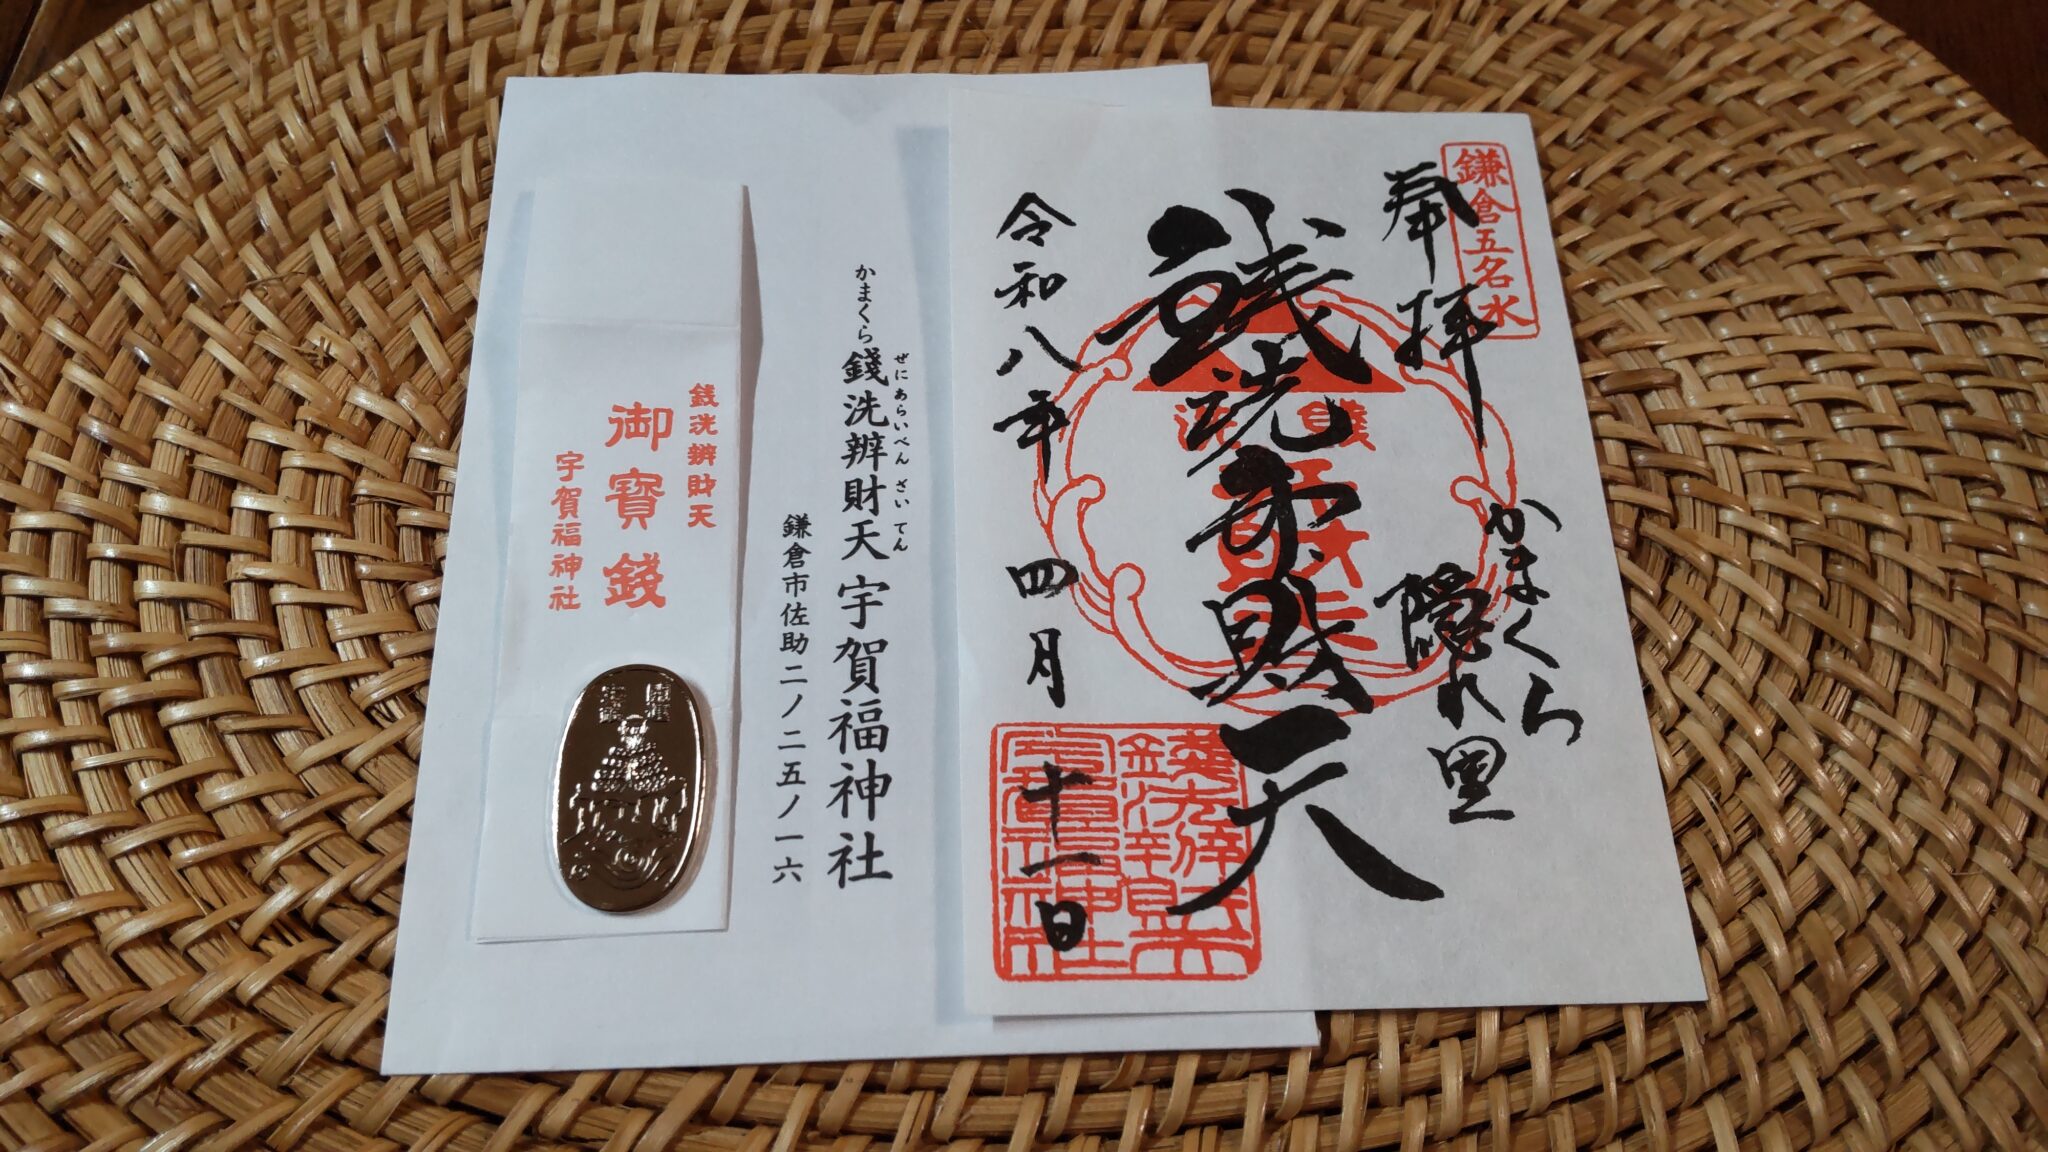 鎌倉五名水
奉拝
かまくら
隠れ里
銭洗弁財天
銭洗
令和八年四月十一日
ぜにあらいべんざいてん
かまくら錢洗辨財天宇賀福神社
鎌倉市佐助二ノ二五ノ一六
銭洗辨財天
御寶錢
宇賀福神社